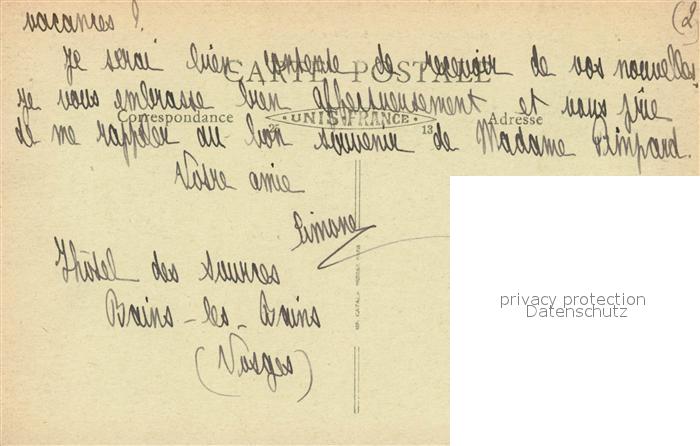 (2
vacances ?
Je serai bien contente de recevoir de vos nouvelles.
CARTE POSTALE
Je vous embrasse bien affectueusement et vous prie
Correspondance
UNIS FRANCE
Adresse
26
13
de me rappeler au bon souvenir de Madame
Votre amie
Simone
Hôtel des Sources
Bains-les-Bains
(Vosges)
privacy protection
Datenschutz